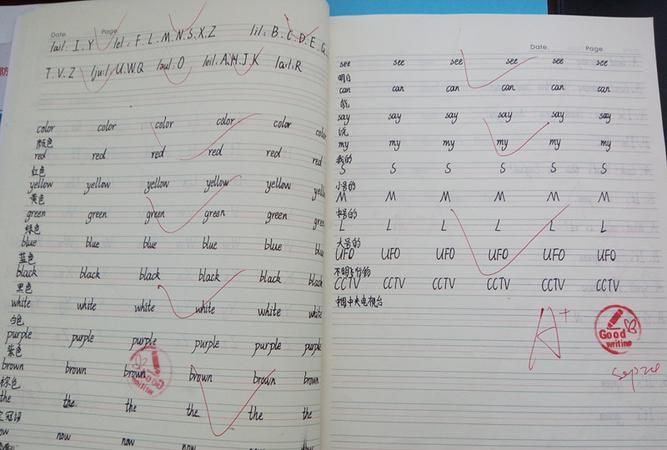 Date. Page
/ai/: I.Y /e/: F.L.M.N.S.X.Z /i/: B.C.D.E.G.
T.V.Z /ju:/: U.W.Q /əu/: O /ei/: A.H.J.K /a:/: R
color color color color color color
颜色
red red red red red red
红色
yellow yellow yellow yellow yellow
黄色
green green green green green green
绿色
blue blue blue blue blue blue
蓝色
black black black black black black
黑色
white white white white white white
白色
purple purple purple purple purple purple
紫色
brown brown brown brown brown brown
棕色
the the the the the the
定冠词
now now now now now
Good
writing
Date. Page
see see see see see see
明白
can can can can can can
能
say say say say say say
说
my my my my my my
我的
S S S S S S
小号的
M M M M M M
中号的
L L L L L L
大号的
UFO UFO UFO UFO UFO UFO
不明飞行物
CCTV CCTV CCTV CCTV CCTV CCTV
中国中央电视台
A+
Good
writing